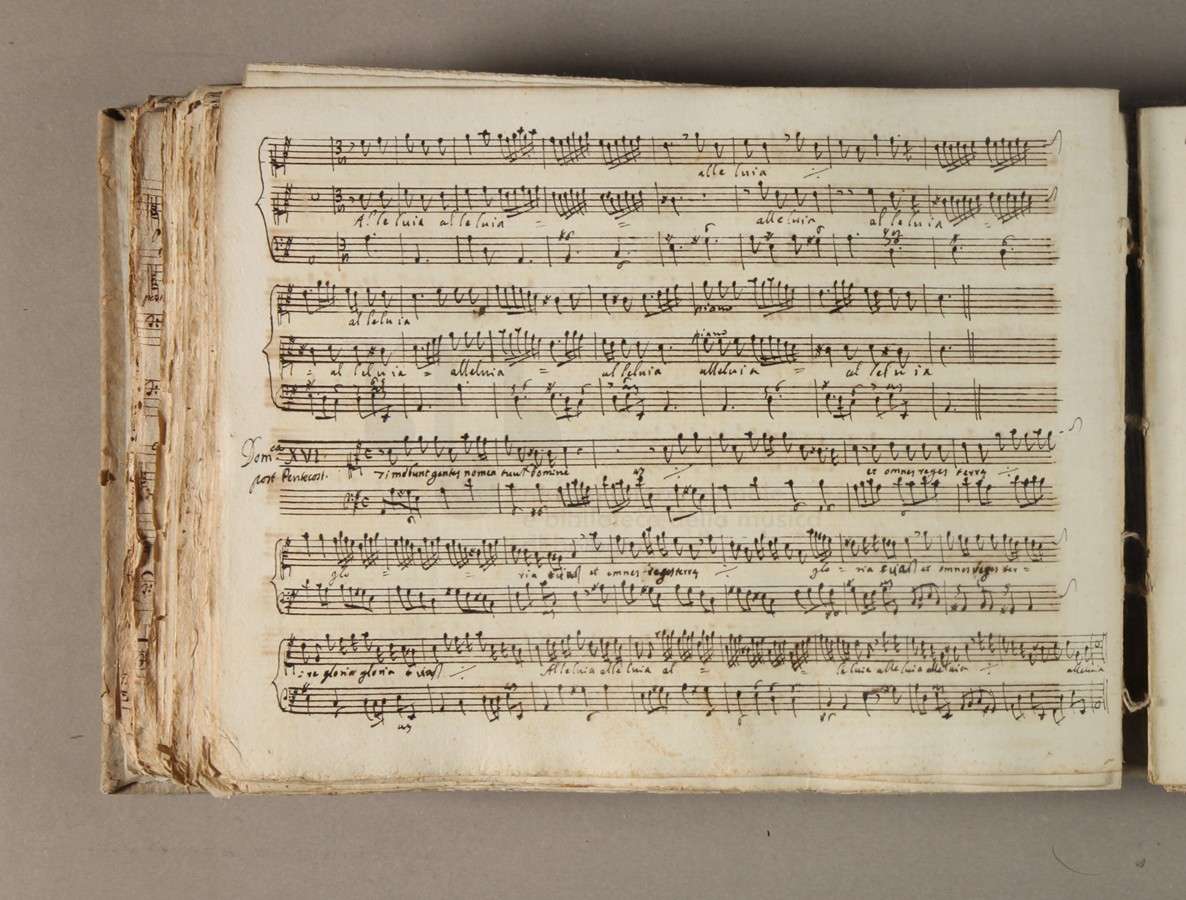 alle luia
Alle luia alleluia = = alleluia alleluia
alleluia piano
piano
= alleluia = alleluia = alleluia alleluia = alleluia
Dom.ca XVI
post Pentecost.
Timebunt gentes nomen tuum Domine et omnes reges terre
e biblioteca della musica
glo = = ria et omnes reges terre glo = ria et omnes reges ter =
= re gloria gloria Alleluia alle luia al = = le luia alle luia alleluia alleluia